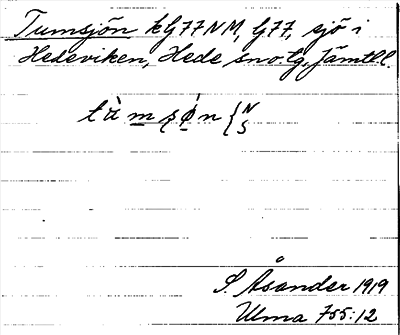 Tumsjön kG77NM, G77, sjö i
Hedeviken, Hede sn o. tg, Jämtl l.
tùmsø̀n {N
S
S. Åsander 1919
Ulma 755:12